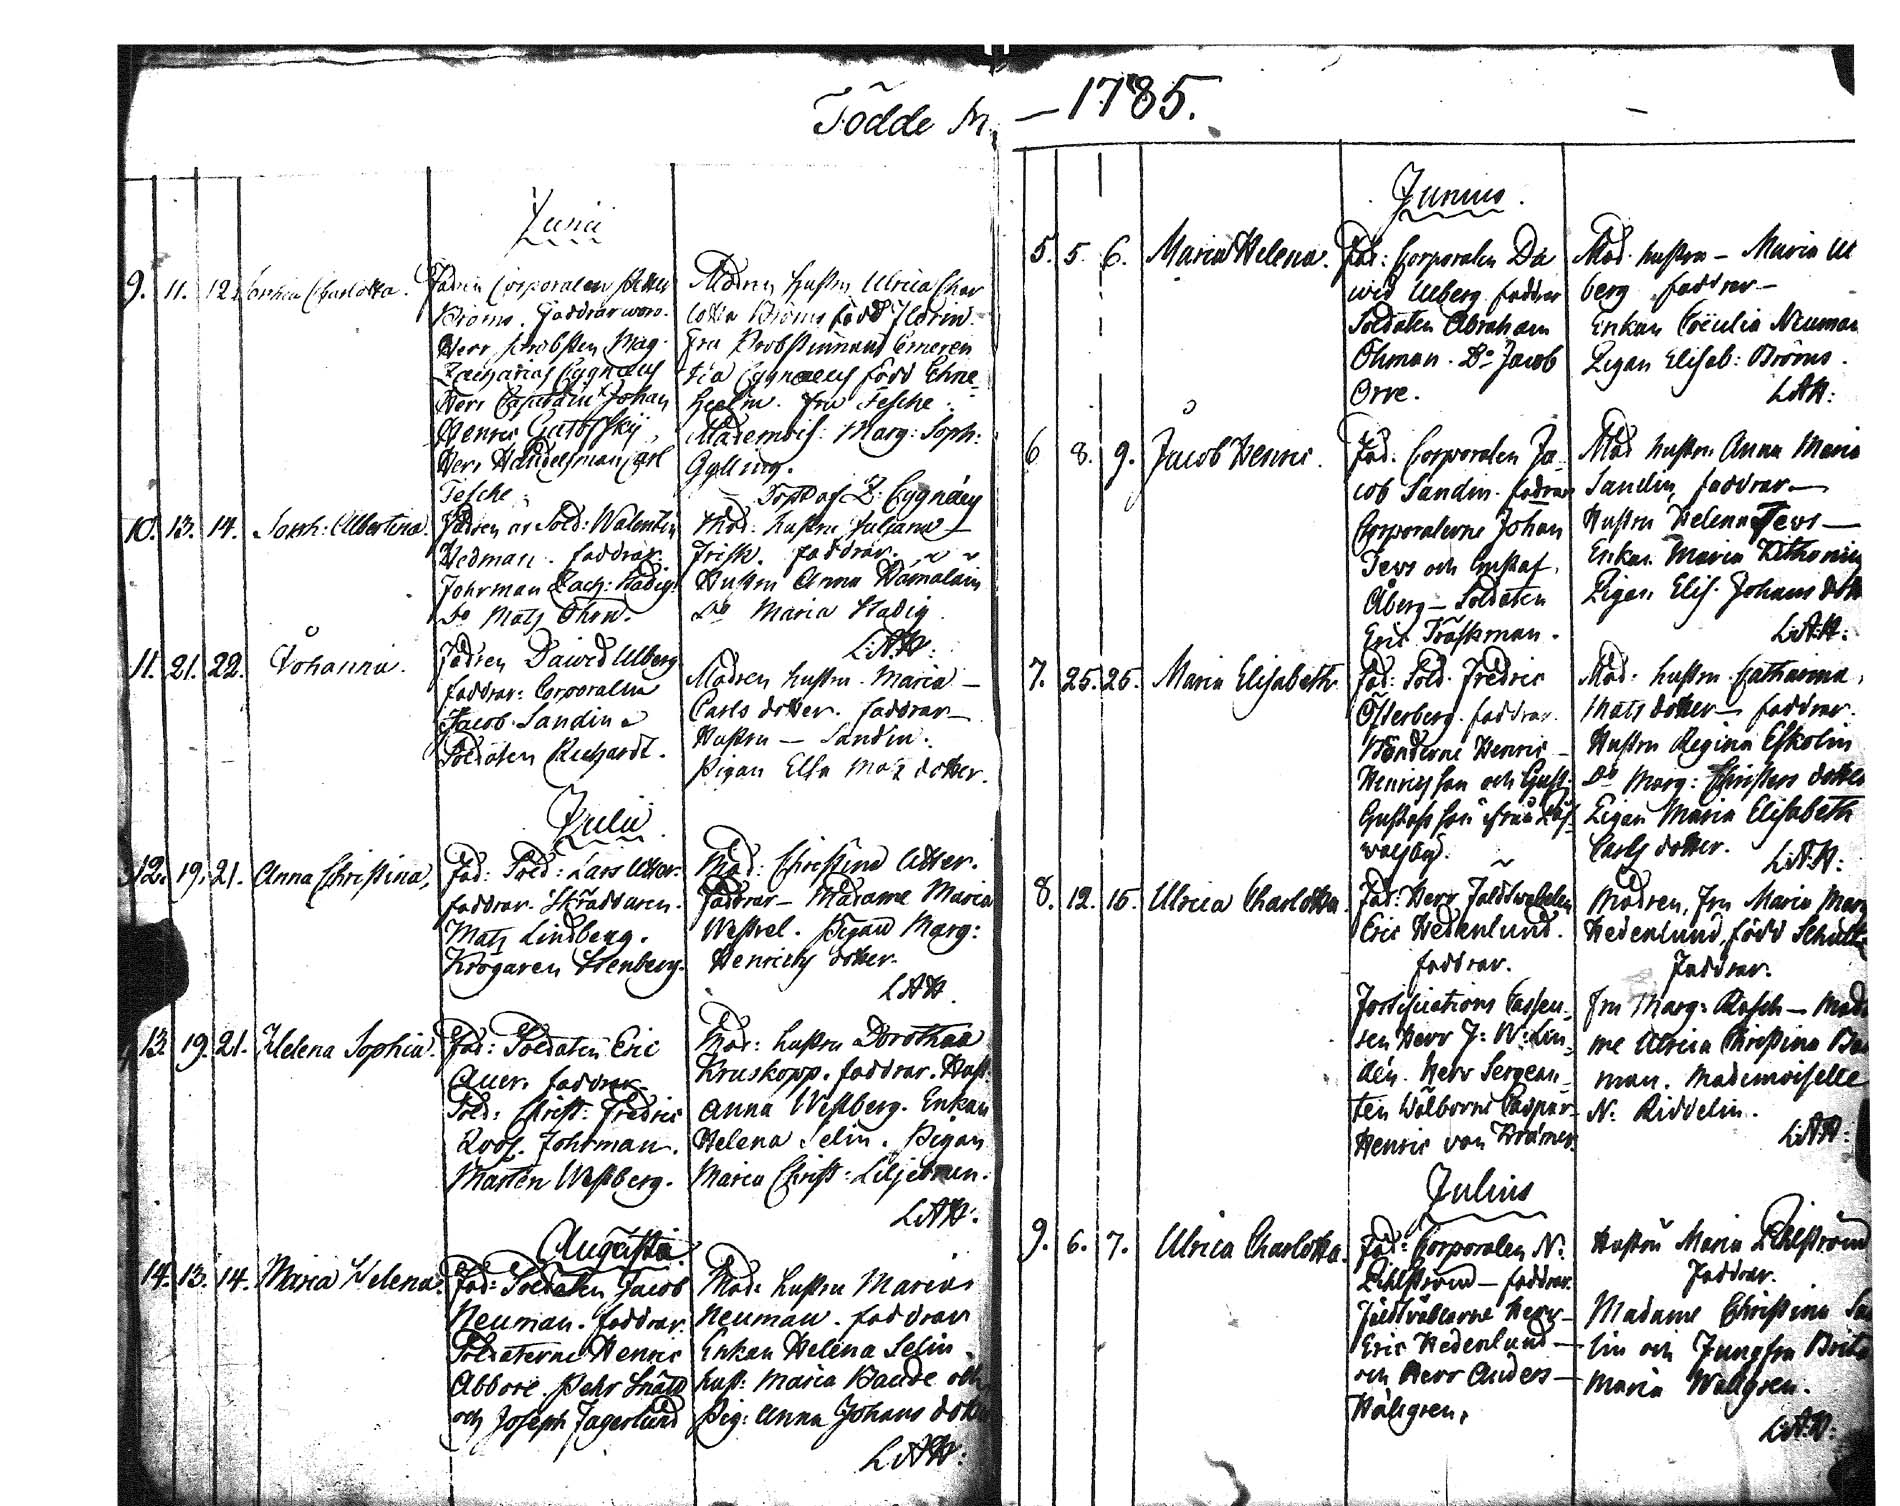 Födde År
— 1785.
Junii
9. 11. 12. Charlotta.
Fadren Corporalen
Broms. Faddrar woro.
Herr Probsten Mag.
Zacharias Cygnæus
Herr Capitain Johan
Henric
Herr Handelsman Carl
Tesche
Modren hustru Ulrica Char
lotta Broms född
Fru Probstinnan Emeren
tia Cygnaeus född Ehre
Fru Tesche.
Mademois: Marg: Soph:
Gylling.
Döpt af Z: Cygnæus
10. 13. 14. Soph: Albertina.
Fadren är Sold: Walentin
Hedman. faddrar.
Fohrman Zach: Hadig.
Do Mats Öhrn.
Mod: hustru Juliana —
Frisk. faddrar.
Hustru Anna Hämäläin
Do Maria Hadig.
L:A:H:
11. 21. 22. Johanna.
Fadren Dawid Ulberg
faddrar: Corporalen
Jacob Sandin
Soldaten Richardt.
Modren hustru Maria —
Carls dotter. faddrar —
Hustru — Sandin.
Pigan Elsa Mats dotter.
Julii
12. 19. 21. Anna Christina.
Fad: Sold: Lars Utter.
faddrar. Skräddaren.
Mats Lindberg.
Krögaren Stenberg.
Mod: Christina Utter.
Faddrar — Madame Maria
Pigan Marg:
Henrichs dotter.
L:A:H
13. 19. 21. Helena Sophia.
Fad: Soldaten Eric
Auer. faddrar
Sold: Christ: Fredric
Roos. Fohrman.
Mårten Westberg.
Mod: hustru Dorothaa
Kruskopp. faddrar. Hust.
Anna Westberg. Enkan
Helena Selin. Pigan
Maria Christ: Liljebrun.
L:A:H:
Augusti
14. 13. 14. Maria Helena.
Fad: Soldaten Jacob
Neuman. faddrar.
Soldaterne Henric
Abbore. Pehr
och Joseph Jagerlund
Mod: hustru Maria
Neuman. faddrar
Enkan Helena Selin.
hust: Maria Baude och
Pig: Anna Johans dotter
L:A:H:
Junius.
5. 5. 6. Maria Helena.
Fad: Corporalen Da
wid Ulberg. faddrar
Soldaten Abraham
Öhman. Do Jacob
Orre.
Mod. hustru — Maria Ul
berg faddrar —
Enkan Cæcilia Neuman
Pigan Elisab: Broms.
L:A:H:
6 8. 9. Jacob Henric.
Fad. Corporalen Ja
cob Sandin. faddrar
Corporalerne Johan
Tews och Gustaf.
Åberg — Soldaten
Eric Träskman.
Mod hustru Anna Maria
Sandin, faddrar —
Hustru Helena Tews —
Enkan Maria
Pigan Elis. Johans dott
L:A:H:
7. 25. 25. Maria Elisabeth
Fad: Sold. Fredric
Österberg. faddrar.
Bönderne Henric —
Henrichsson och Gust:
Gustafsson ifrån
Mod: hustru Catharina,
Mats dotter — faddrar.
Hustru Regina Eskolin
Do Marg: Christers dotter
Pigan Maria Elisabeth
Carls dotter.
L:A:H:
8. 12. 15. Ulrica Charlotta.
Fad: Herr Fältwebelen
Eric Hedenlund.
faddrar.
Fortifications Casseu
ren Herr J: W: Lin
dén. Herr Sergean
ten Wälborne Caspar
Henric von Kræmer.
Modren, Fru Maria Marg
Hedenlund, född Schultz
Faddrar.
Fru Marg: Rosch — Mada
me Ulrica Christina
man. Mademoiselle
N: Riddelin.
L:A:H:
Julius
9. 6. 7. Ulrica Charlotta.
Fad: Corporalen N:
Zihlström — faddrar.
Fältväblarne Herr —
Eric Hedenlund —
och Herr Anders —
Wälgren,
Hustru Maria Zihlström
Faddrar.
Madame Christina
lin och Jungfru Brita
Maria Wallgren.
L:A:H: